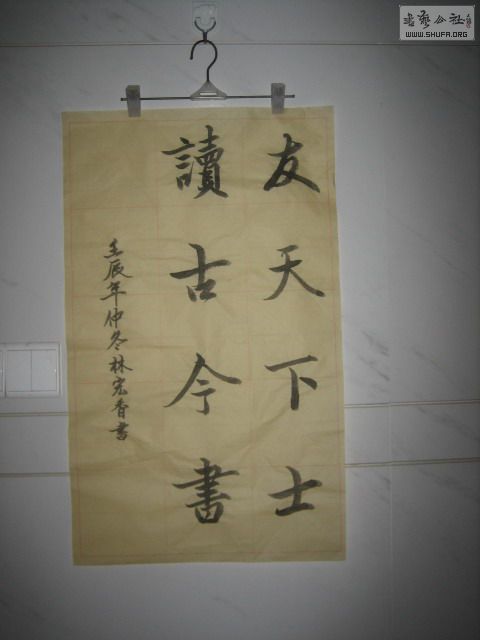 友天下士
讀古今書
壬辰年仲冬林宏香書
书艺公社
WWW.SHUFA.ORG